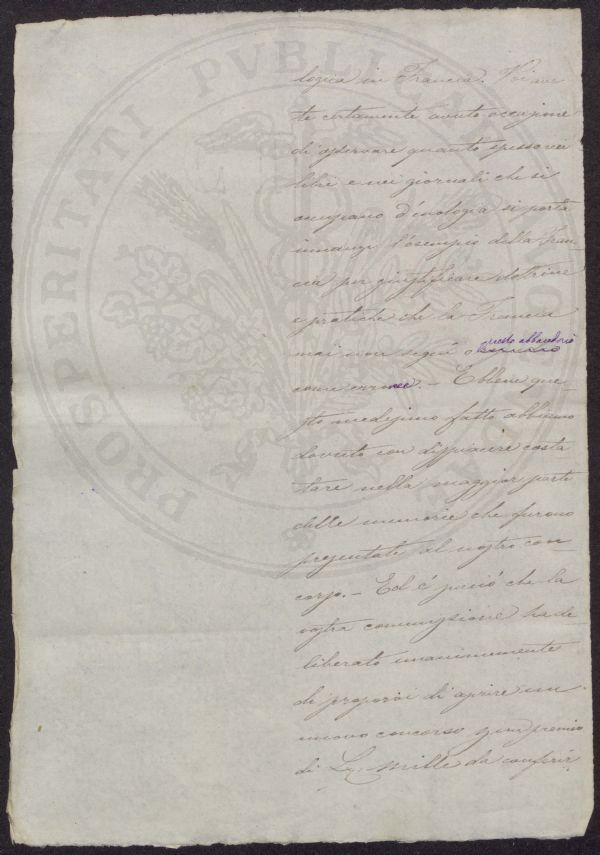 PROSPERITATI PVBLICAE
logica in Francia. Voi ave
te certamente avuto occasione
di osservare quanto spesso nei
libri e nei giornali che si
occupano d'enologia si porta
innanzi l'esempio della Fran-
cia per giustificare dotrine
e pratiche che la Francia
mai non seguì o presto abbandonò
come erronee. - Ebbene que-
sto medesimo fatto abbiamo
dovuto con dispiacere costa
tare nella maggior parte
delle memorie che furono
presentate al nostro con-
corso. - Ed è perciò che la
vostra commissione ha de
liberato unanimemente
di proporvi di aprire un
nuovo concorso premio
di L. mille da conferir